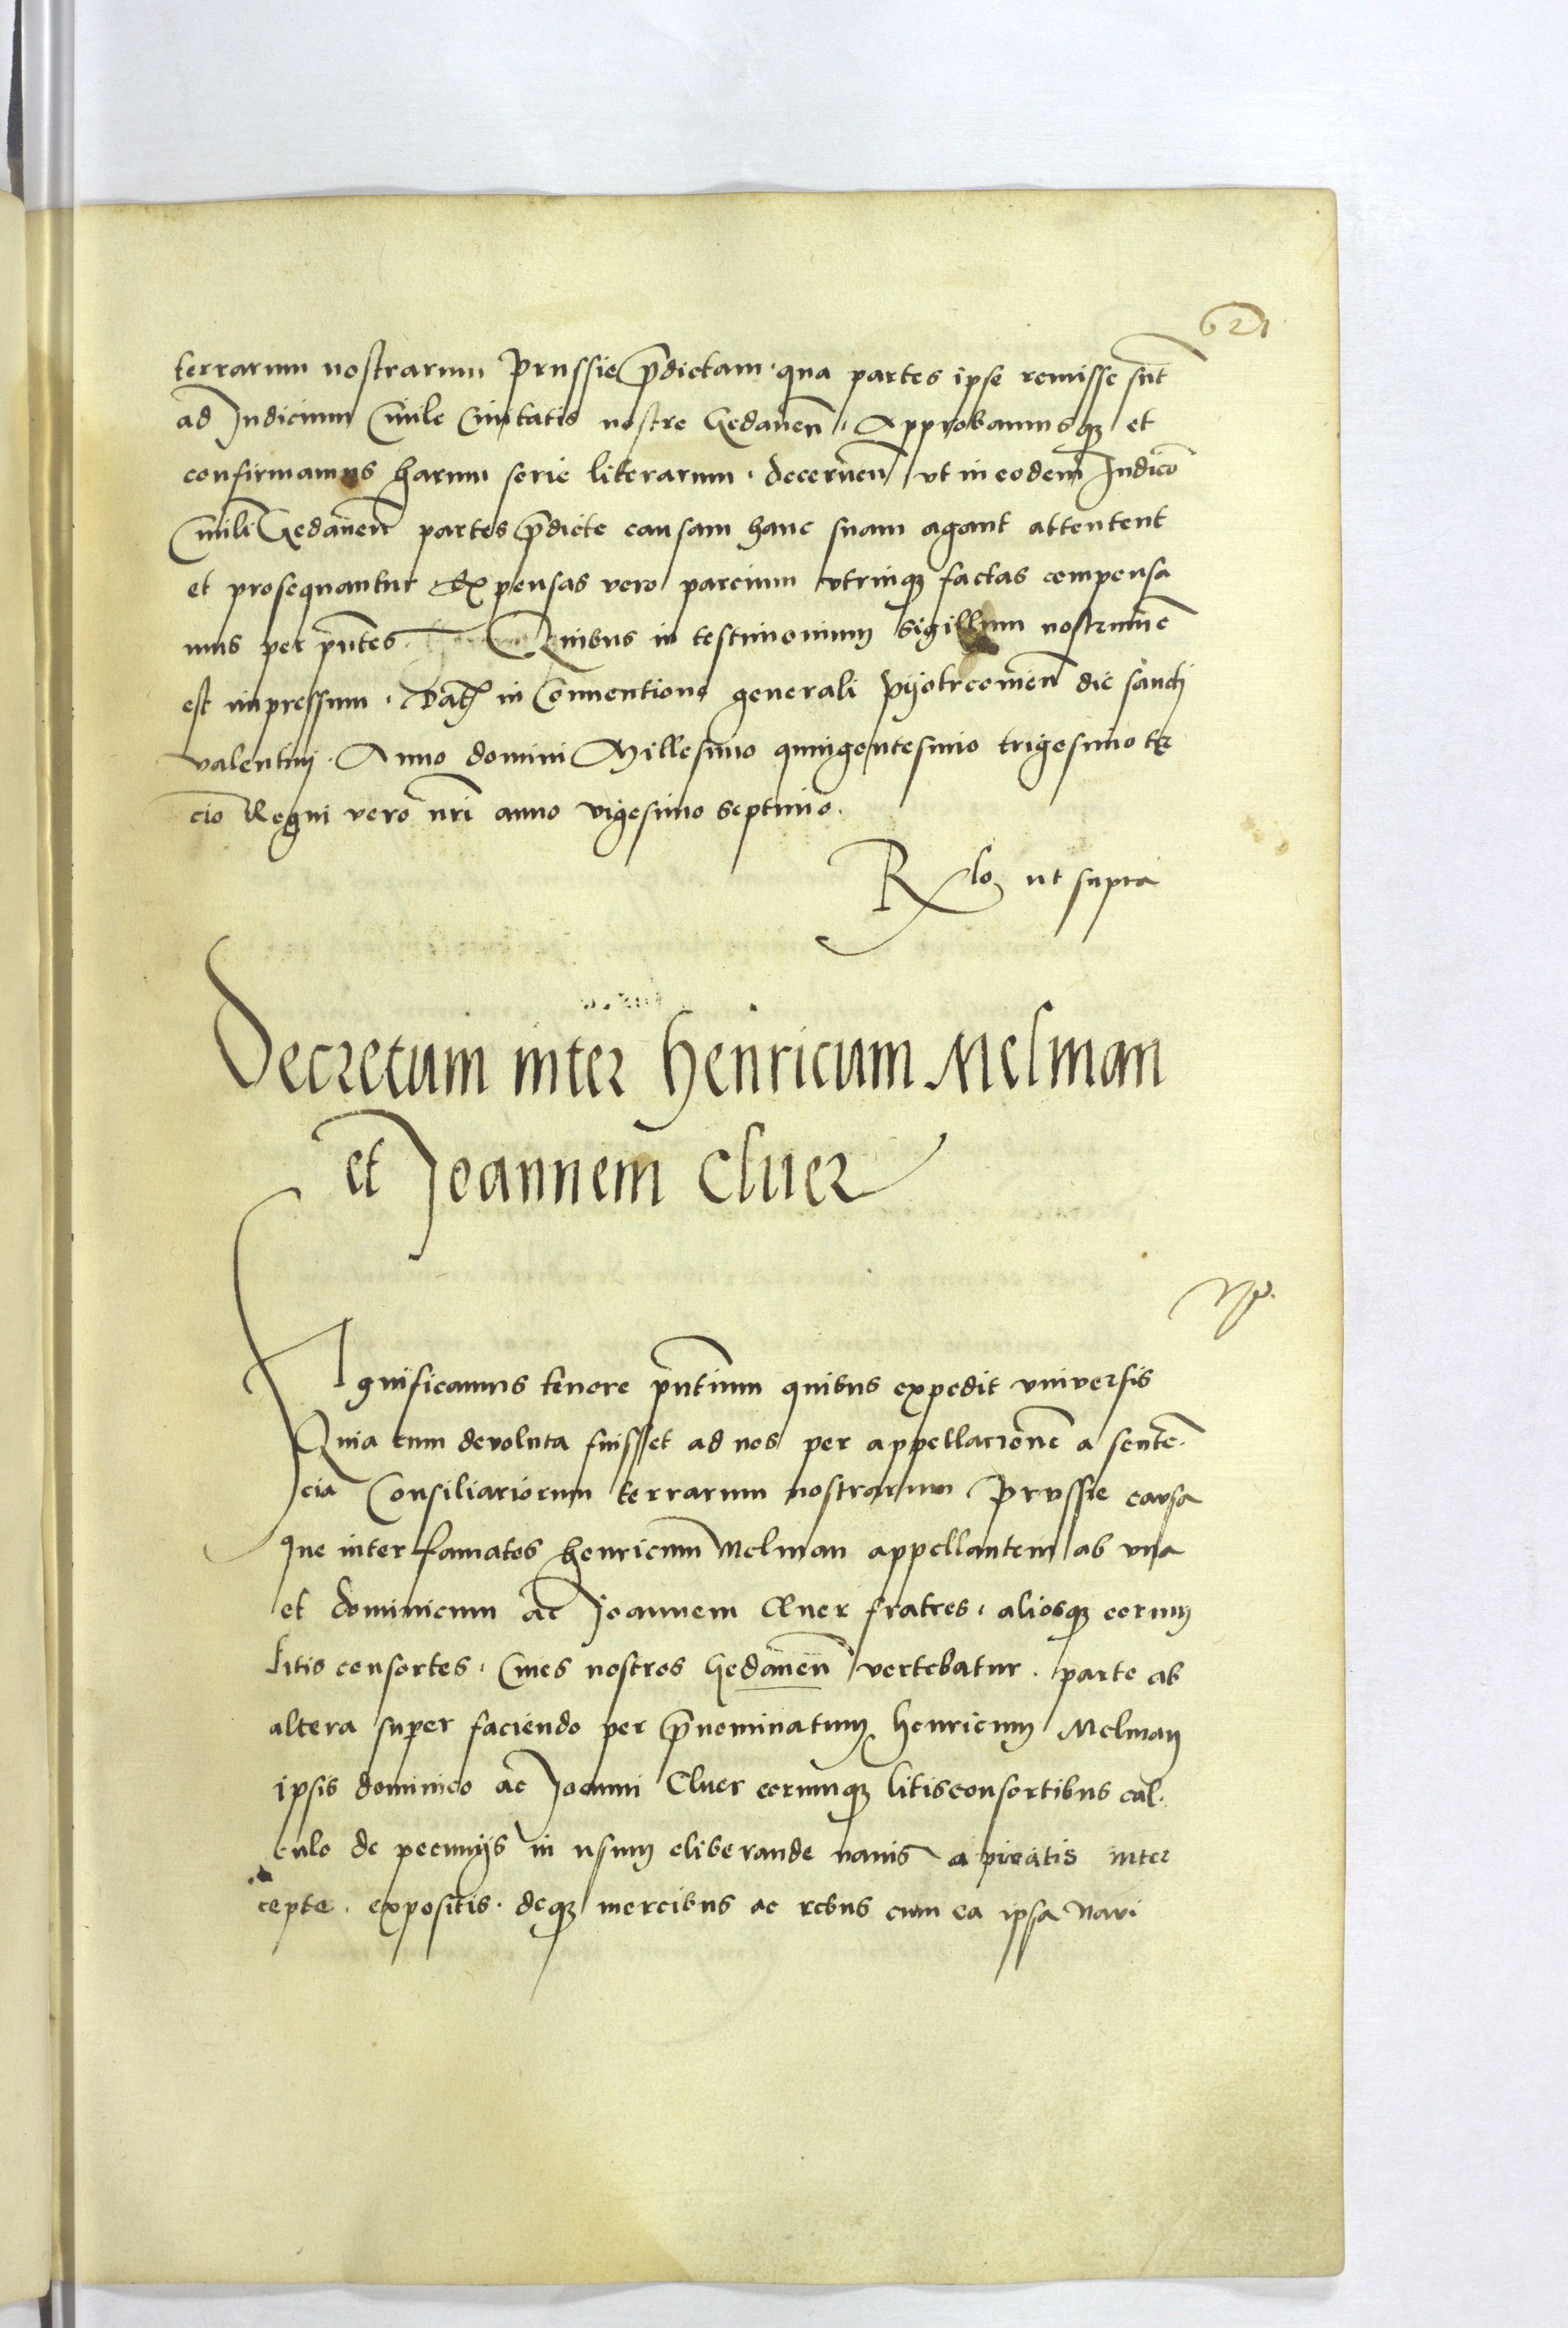 621
terrarum nostrarum Prussie p̄dictam · qua partes ipse remisse sūt
ad Judicium Ciuile Ciuitatis nostre Gedaneñ · Approbamusqȝ et
confirmamus harum serie literarum · decerneñ vt in eodem Judicō
Ciuili Gedaneñ partes p̄dicte causam hanc suam agant attentent
et prosequantur Expensas vero parcium vtrinqȝ factas compensa
mus per pñtes Quibus in testimonium Sigillum nostrum ē
est impressum · Dat in Conuentione generali Pijotrcouieñ die sancti
valentini · Anno domini Millesimo quingentesimo trigesimo ter
cio Regni vero nr̄i anno vigesimo septimo.
Rlo ut supra
Decretum inter Henricum Melman
et Joannem Cluer
Significamus tenore pñtium quibus expedit vniuersis
Quia cum deuoluta fuisset ad nos per appellacionē a senten
cia Consiliariorum terrarum nostrarum Prussie causa
que inter famatos Henricum Melman appellantem ab vna
et dominicum ac Joannem Cluer fratres · aliosqȝ eorum
litis consortes · Ciues nostros Gedaneñ vertebatur · parte ab
altera super faciendo per p̄nominatum Henricum Melman
ipsis dominico ac Joanni Cluer eorumqȝ litisconsortibus cal.
culo de pecunijs in usum eliberande nauis a piratis inter
cepte · expositis · deqȝ mercibus ac rebus cum ea ipsa Navi